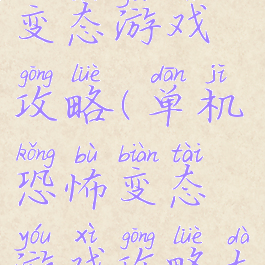 变态游戏
gōng lüè dān jī
攻略(单机
kǒng bù biàn tài
恐怖变态
yóu xì gōng lüè dà
游戏攻略大